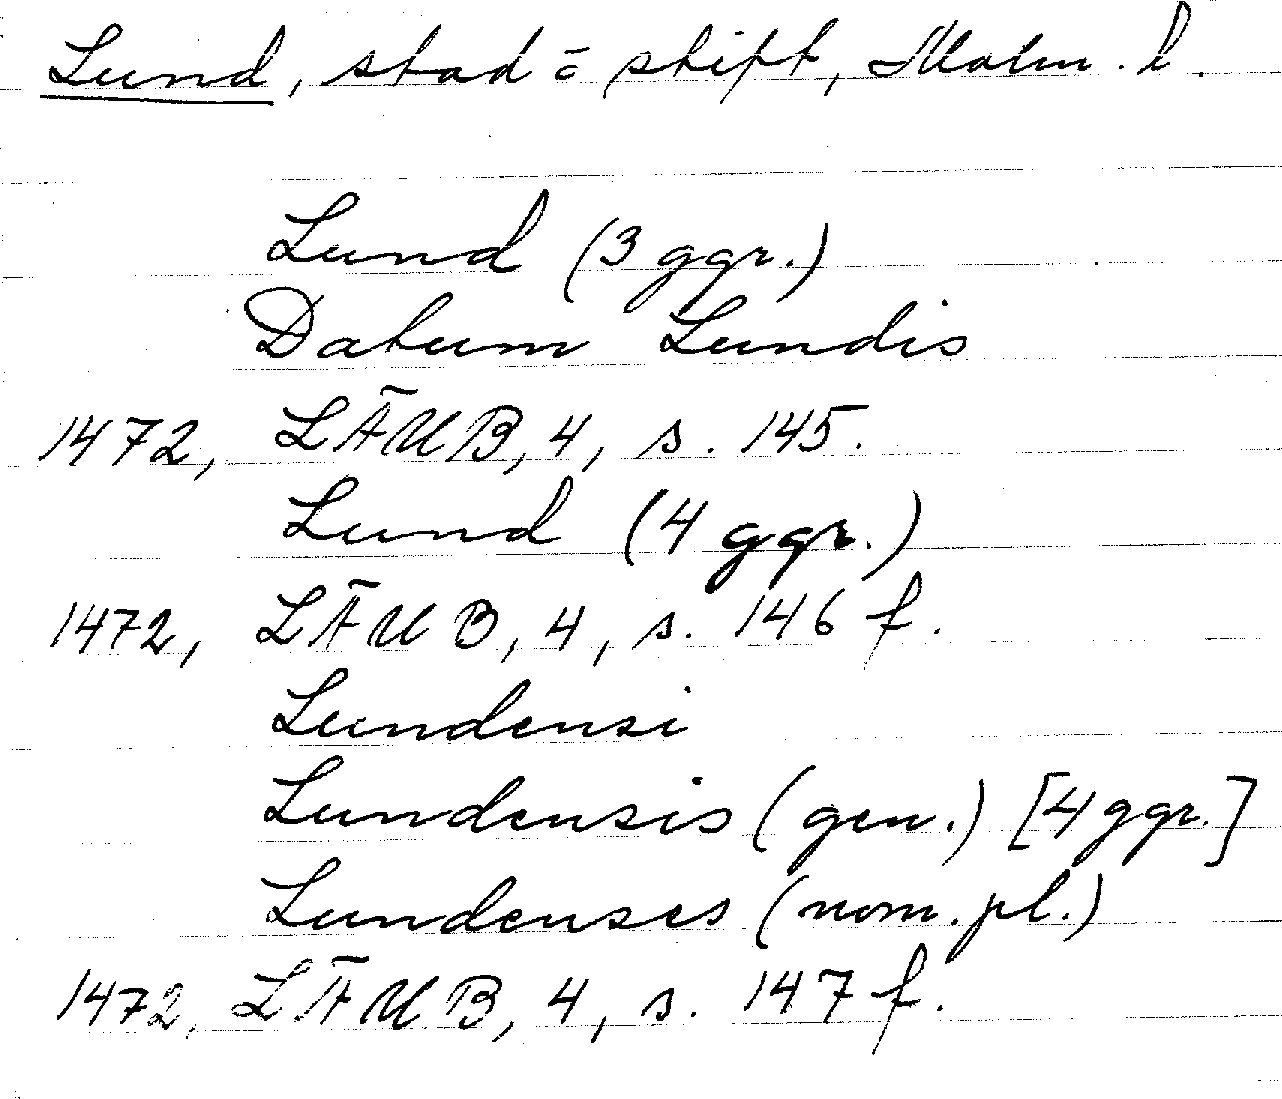 Lund, stad o̅ stift, Malm. l.
Lund (3 ggr.)
Datum Lundis
1472, LÄUB, 4, s. 145.
Lund (4 ggr.)
1472, LÄUB, 4, s. 146 f.
Lundensi
Lundensis (gen.) [4 ggr.]
Lundenses (nom. pl.)
1472, LÄUB, 4, s. 147 f.